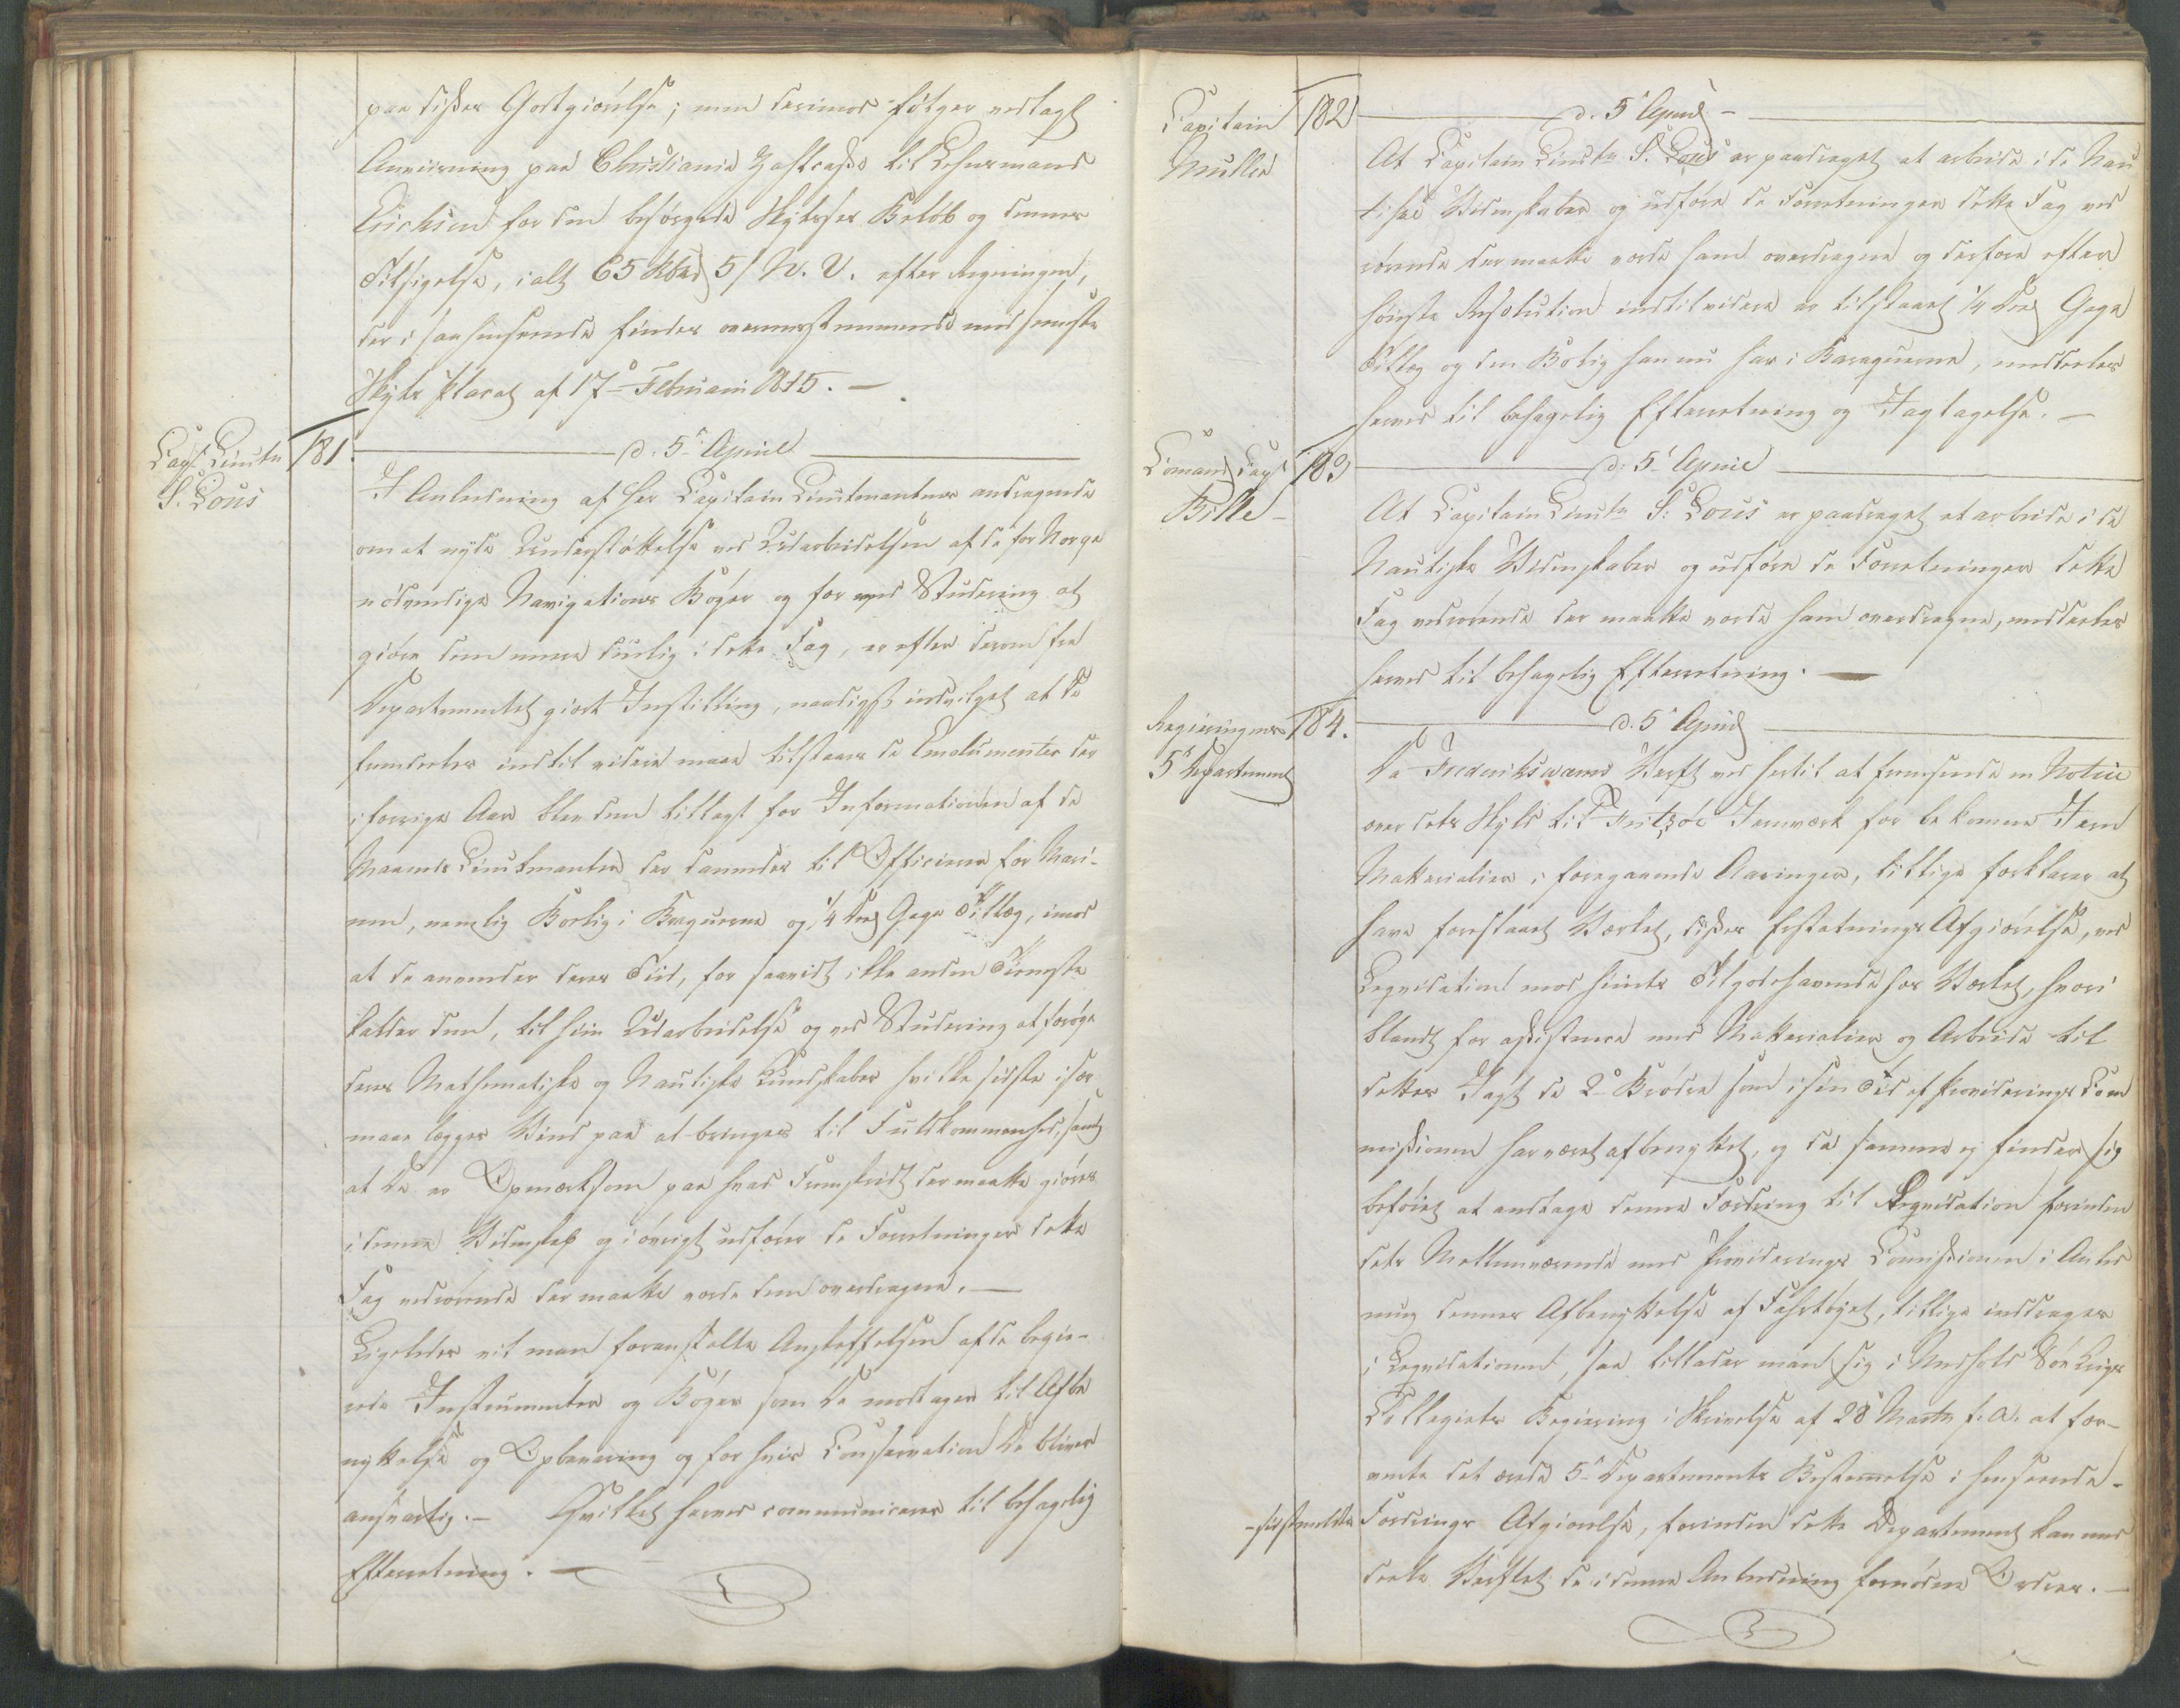 paa disses Godtgiørelse; men derimod følger vedlagt
Anviisning paa Christiania Zahlcasse til Lehnsmand
Erichsen for den besørgede Skydses Beløb og dennes
Tilsigelse, ialt 65 Rbdr 5 s N. V. efter Regningen,
der i saa henseende findes overeensstemmende med seneste
Skyds Placat af 17de Februarii 1815. —
Capt. Lieutn
S. Lous
181.
d. 5te April
I Anledning af Her Capitain Lieutenantens andragende
om at nyde Understøttelse ved Udarbeidelsen af de for Norge
nødvendige Navigations Bøger og for ved Studering at
giøre dem mere duelig i dette Fag, er efter derom fra
Departementet giort Instilling, naadigst indvilget at De
fremdeeles indtil videre maae tilstaaes de Emolumenter der
i forrige Aar blev dem tillagt for Informationen af de
Maaneds Lieutenanter der dannedes til Officierer for Mari-
nen, nemlig Bolig i Baraquerne og 1/4 Deel Gage Tillæg, imod
at De anvender Deres Tiid, for saavidt ikke anden Tieneste
kalder dem, til hiin Udarbeidelse og ved Studering at forøge
deres Mathematiske og Nautiske Kundskaber hvilke sidste især
maae lægges Vind paa at bringes til Fuldkommenhed, samt
at De er Opmærksom paa hvad Fremskridt der maatte giøres
i denne Videnskab og i øvrigt udfører de Forretninger dette
Fag vedrørende der maatte vorde dem overdragne. —
Ligeledes vil man foranstalte Anskaffelsen af de begie-
rede Instrumenter og Bøger som De modtager til Afbe
nyttelse og Opbevaring og for hvis Conservation De bliver
ansvarlig. — Hvilket herved communiceres til behagelig
Efterretning. —
Capitain
Müller
182
d. 5te April —
At Capitain Lieutn S. Lous er paadraget at arbeide i de Nau
tiske Videnskaber og udføre de Forretninger dette Fag ved
rørende der maatte vorde ham overdragne og derfore efter
høieste Resolution indtil videre er tilstaaet 1/4 Deel Gage
Tillæg og den Bolig han nu har i Baraquerne, meddeeles
herved til behagelig Efterretning og Iagtagelse. —
Comand Capt
Bille —
183
d. 5te April
At Capitain Lieutn S: Lous er paadraget at arbeide i de
Nautiske Videnskaber og udføre de Forretninger dette
Fag vedrørende der maatte vorde ham overdragne, meddeeles
herved til behagelig Efterretning. —
Regieringens
5te Departement
184.
d. 5te April
Da Frederiksværns Værft ved hertil at fremsende en Notice
over dets Skyld til Fritzøe Jernværk for bekomne Jern
Matterialier i foregaaende Aaringer, tillige forklarer at
have foreslaaet Værket, disses Erstatnings Afgiørelse, ved
Leqvidation mod hiints Tilgodehavende hos Værket, hvori
blandt for assisterer med Matterialier og Arbeide til
dettes Jagt de 2de Brødre som i sin Tid af Provideringskom
missionen har været afbenyttet, og da samme ej finder sig
beføiet at andtage denne Fordring til Leqvidation forinden
dets Mellemværende med Providerings Commissionen i Anled
ning dennes Afbenyttelse af Fahrtøjet, tillige inddrages
i Leqvidationen, saa tillader man sig i Medhold Søe Krigs
Collegiets Begiering i Skrivelse af 28 Marts f. A. at for-
vente det ærede 5te Departements Bestemmelse i henseende
- sidstmeldte Fordrings Afgiørelse, forinden dette Departement kan med
deele Værftet de i denne Anledning fornødne Ordres. —